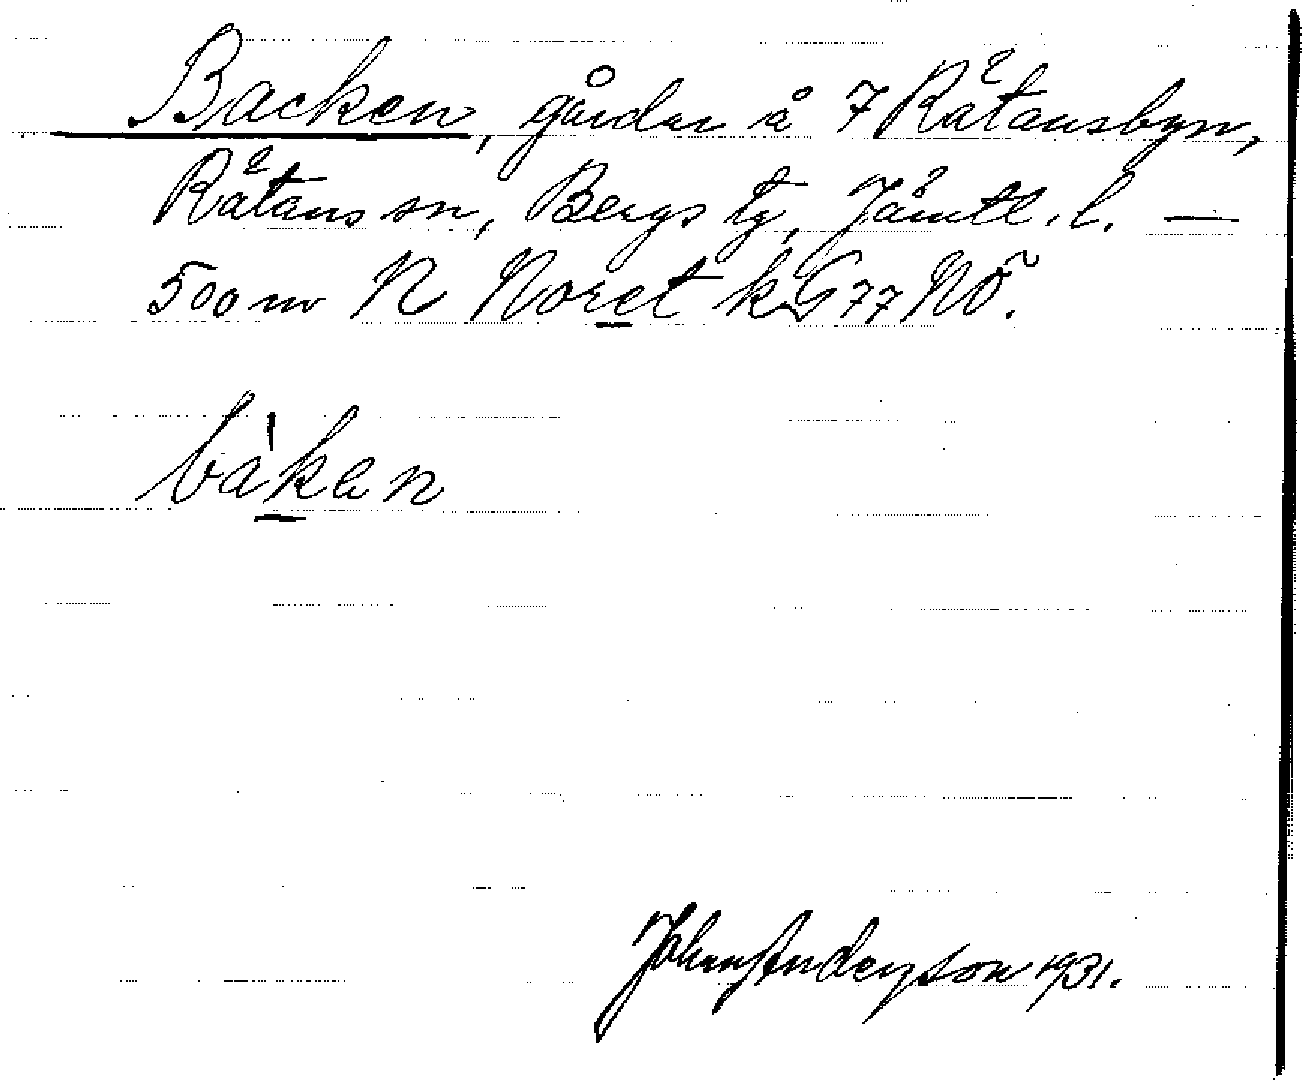 Backen, gårdar å 7 Rätansbyn,
Rätans sn, Bergs tg, Jämtl. l. —
500 m N Noret k G 77 NÖ.
bàken
John Anderson 1931.